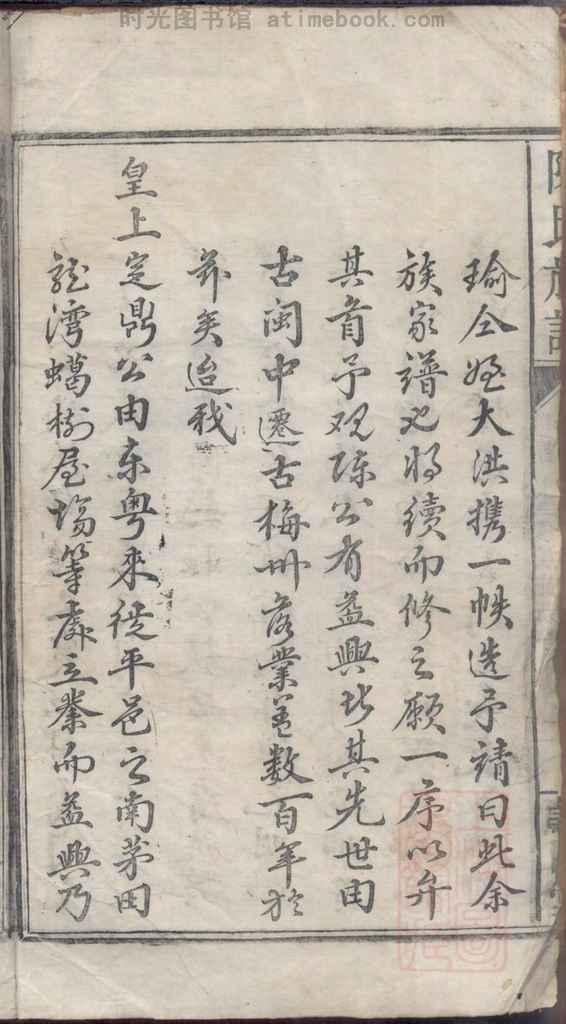 时光图书馆 atimebook.com
陳氏族譜
瑜仝姪大洪携一帙造予請曰此余
族家譜也将續而修之願一序以弁
其首予观陈公有益興者其先世由
古閩中遷古梅州落業盖数百年於
兹矣迨我
皇上定鼎公由东粤來徙平邑之南茅田
龍湾蠄樹屋塲等處立業而益興乃